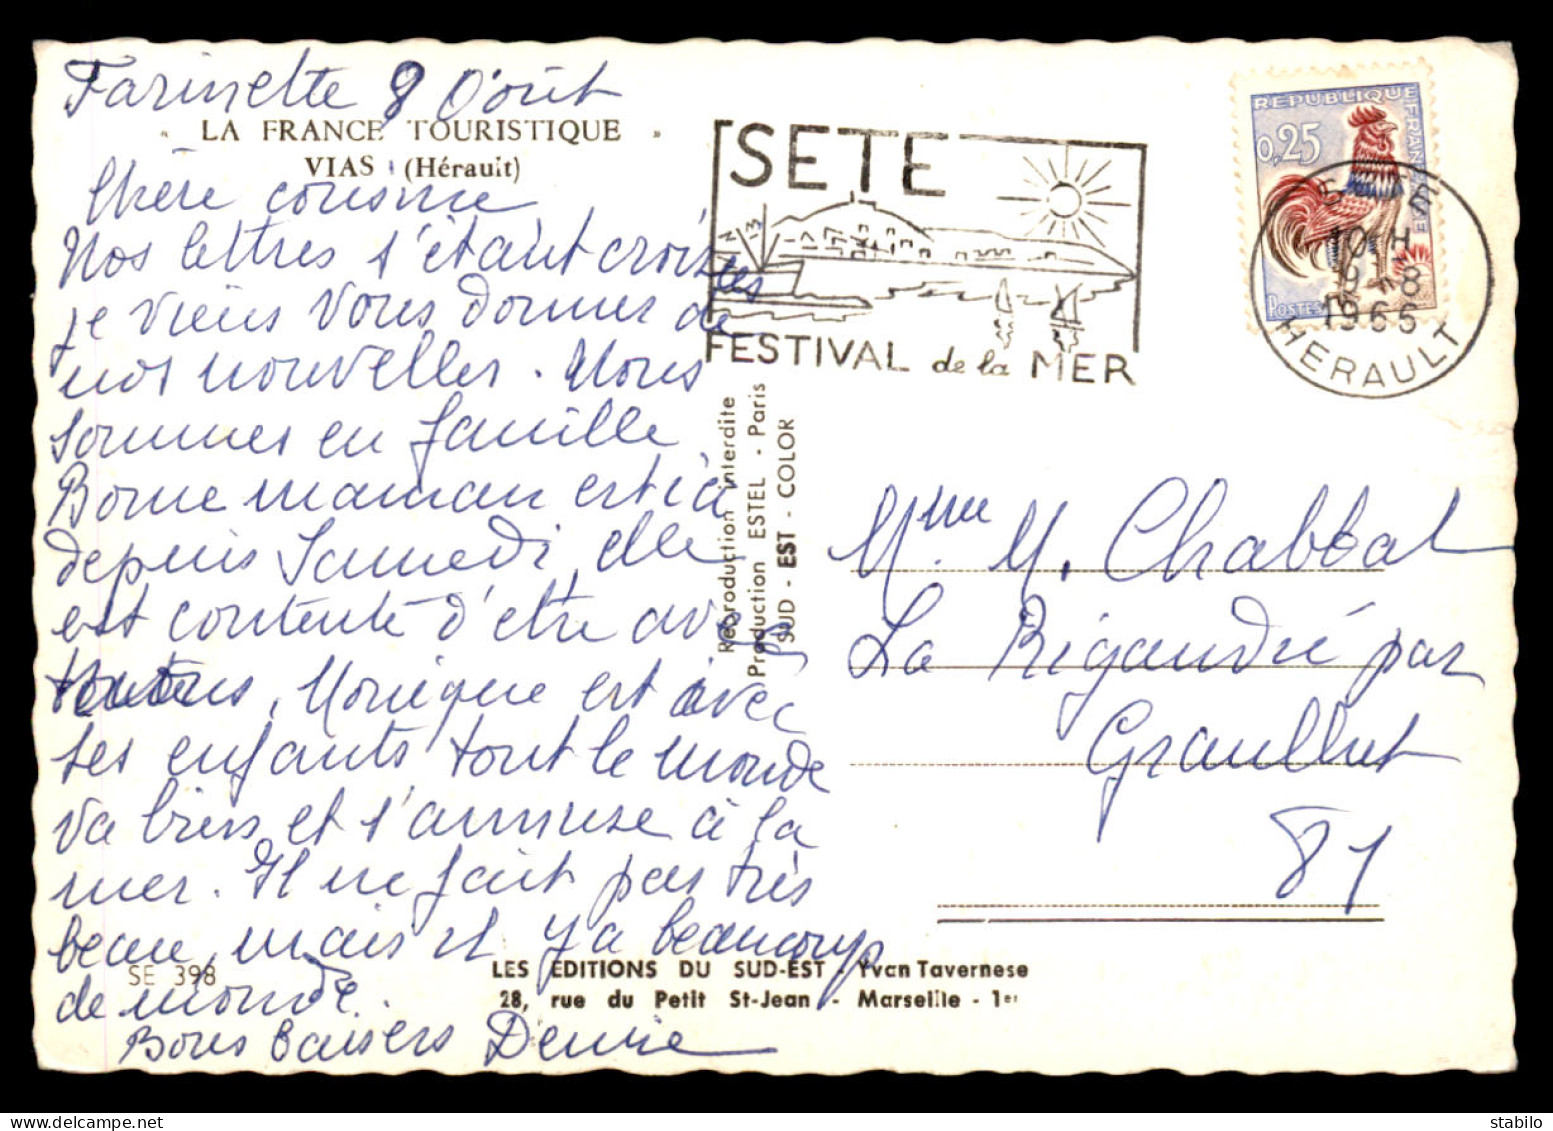 Farinette 8 Août
« LA FRANCE TOURISTIQUE »
VIAS (Hérault)
Chère cousine
Nos lettres s'étant croisées
je viens vous donner de
nos nouvelles. Nous
sommes en famille
Bonne maman est ici
depuis Samedi, elle
est contente d'être avec
nous. Monique est avec
ses enfants tout le monde
va bien et s'amuse à la
mer. Il ne fait pas très
beau, mais il y a beaucoup
de monde.
Bons baisers Denise
SE 398
LES EDITIONS DU SUD-EST - Yvan Tavernese
28, rue du Petit St-Jean - Marseille - 1er
Reproduction interdite
Production ESTEL - Paris
SUD - EST - COLOR
SETE
FESTIVAL de la MER
REPUBLIQUE FRANÇAISE
0,25
POSTES
SETE
10 H
9 - 8
1965
HERAULT
Mme M. Chabbal
La Rigaudié par
Graulhet
81
stabilo